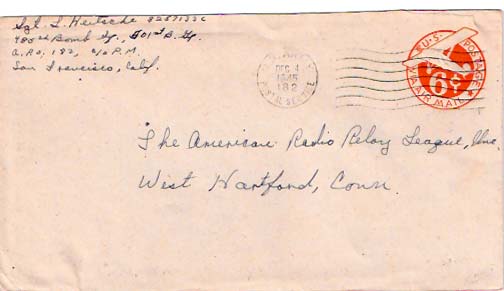 Sgt. L. Heitsche
485th Bomb Sq., 501st B. Gp.
A.P.O. 182, c/o P.M.
San Francisco, Calif.
DEC 4
1945
182
POSTAL SERVICE
U.S. POSTAGE
6¢
VIA AIR MAIL
The American Radio Relay League, Inc.
West Hartford, Conn.